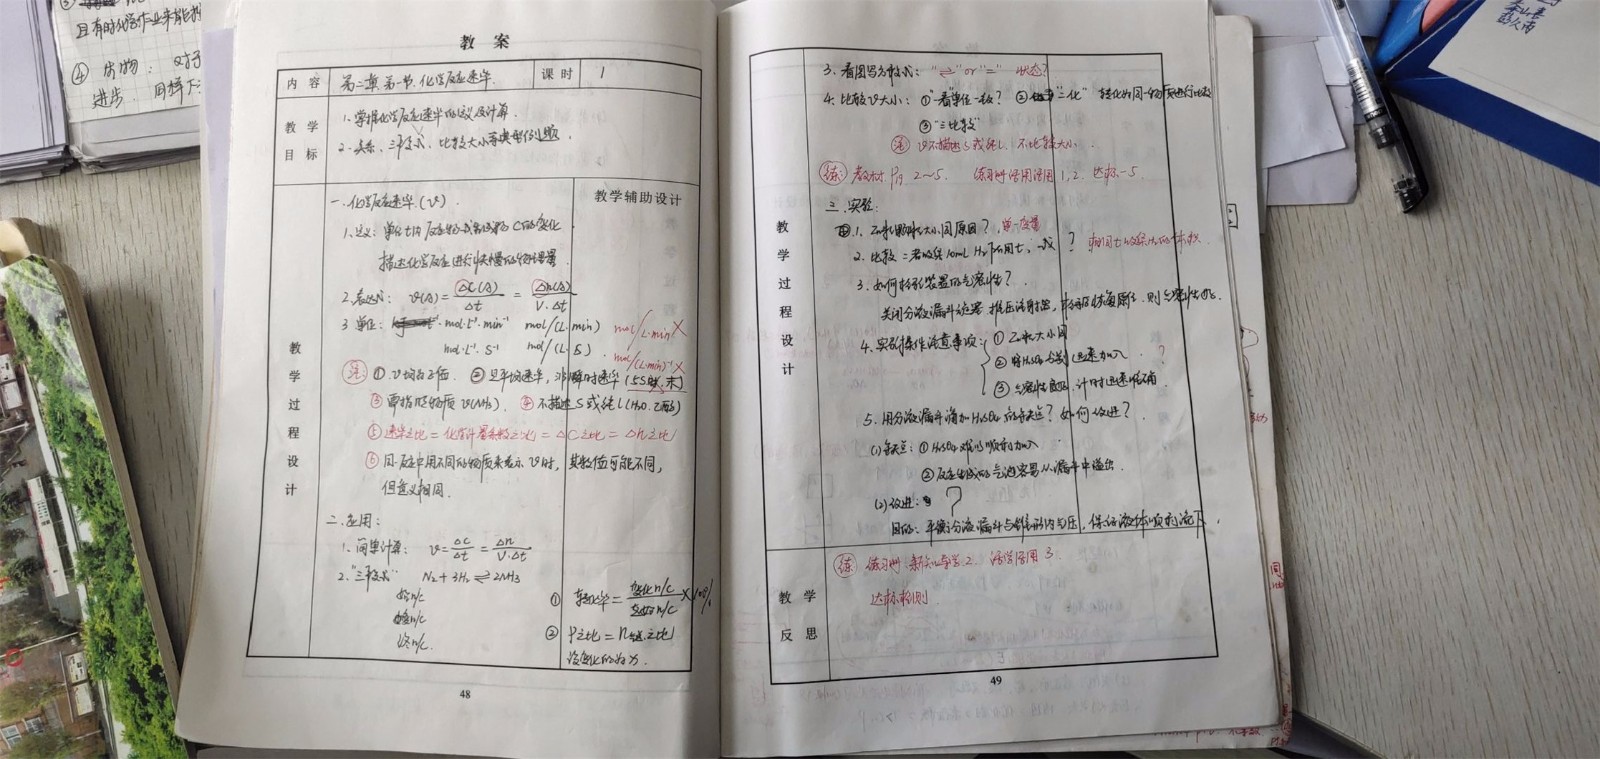 且有时化学作业未能
④ 实物：对于
进步.同样下
教 案
内 容 第二章 第一节.化学反应速率. 课 时 1
教 学 目 标
1.掌握化学反应速率的定义及计算.
2.关系、三段式、比较大小等典型的问题.
教学辅助设计
教 学 过 程 设 计
一.化学反应速率.(v).
1.定义: 单位t内反应物或生成物C的变化
描述化学反应进行快慢的物理量.
2.表达式: v(A)=ΔC(A)/Δt = Δn(A)/V·Δt
3 单位: mol·L⁻¹·min⁻¹ mol/(L·min) mol/L·min ×
mol·L⁻¹·S⁻¹ mol/(L·S). mol/(L·min)⁻¹ ×
注: ① v均为正值. ② 是平均速率,非瞬时速率(5S时.末)
③ 需指明物质 v(NH₃). ④ 不描述S或纯L(H₂O.乙醇)
⑤ 速率之比=化学计量系数之比=ΔC之比=Δn之比
⑥ 同一反应中用不同的物质来表示v时, 其数值可能不同,
但意义相同.
二.应用:
1.简单计算: v=ΔC/Δt=Δn/V·Δt
2."三段式" N₂+3H₂⇌2NH₃
始n/c
终n/c.
① 转化率=变化n/c/起始n/c×100%
② P之比=n气总之比
设变化的为x.
48
3.看图写方程式: "⇌"or"=" 状态?
4.比较v大小: ①"一看"单位一致? ②"二化" 转化为同一物质进行比较
③"三比较"
注 v不描述S或纯L.不比较大小.
练: 教材 P19 2~5. 练习册 活学活用1,2. 达标1-5.
教 学 过 程 设 计
三.实验:
1.Zn粒颗粒大小同原因? 单一变量
2.比较二者收集10mL H₂所用t,一致? 相同t收集H₂的体积.
3.如何检验装置的气密性?
关闭分液漏斗活塞,推压注射器,松开后恢复原位.则气密性良好.
4.实验操作注意事项: ① Zn粒大小同
② 将H₂SO₄ 迅速加入. ?
③ 气密性良好.计时迅速准确.
5.用分液漏斗滴加H₂SO₄的缺点? 如何改进?
(1)缺点: ① H₂SO₄难以顺利加入
② 反应生成的气泡容易从漏斗中溢出.
(2)改进: ?
目的: 平衡分液漏斗与锥形瓶内气压, 保证液体顺利流下.
教 学 反 思
练 练习册.新知导学2. 活学活用3.
达标检测
49